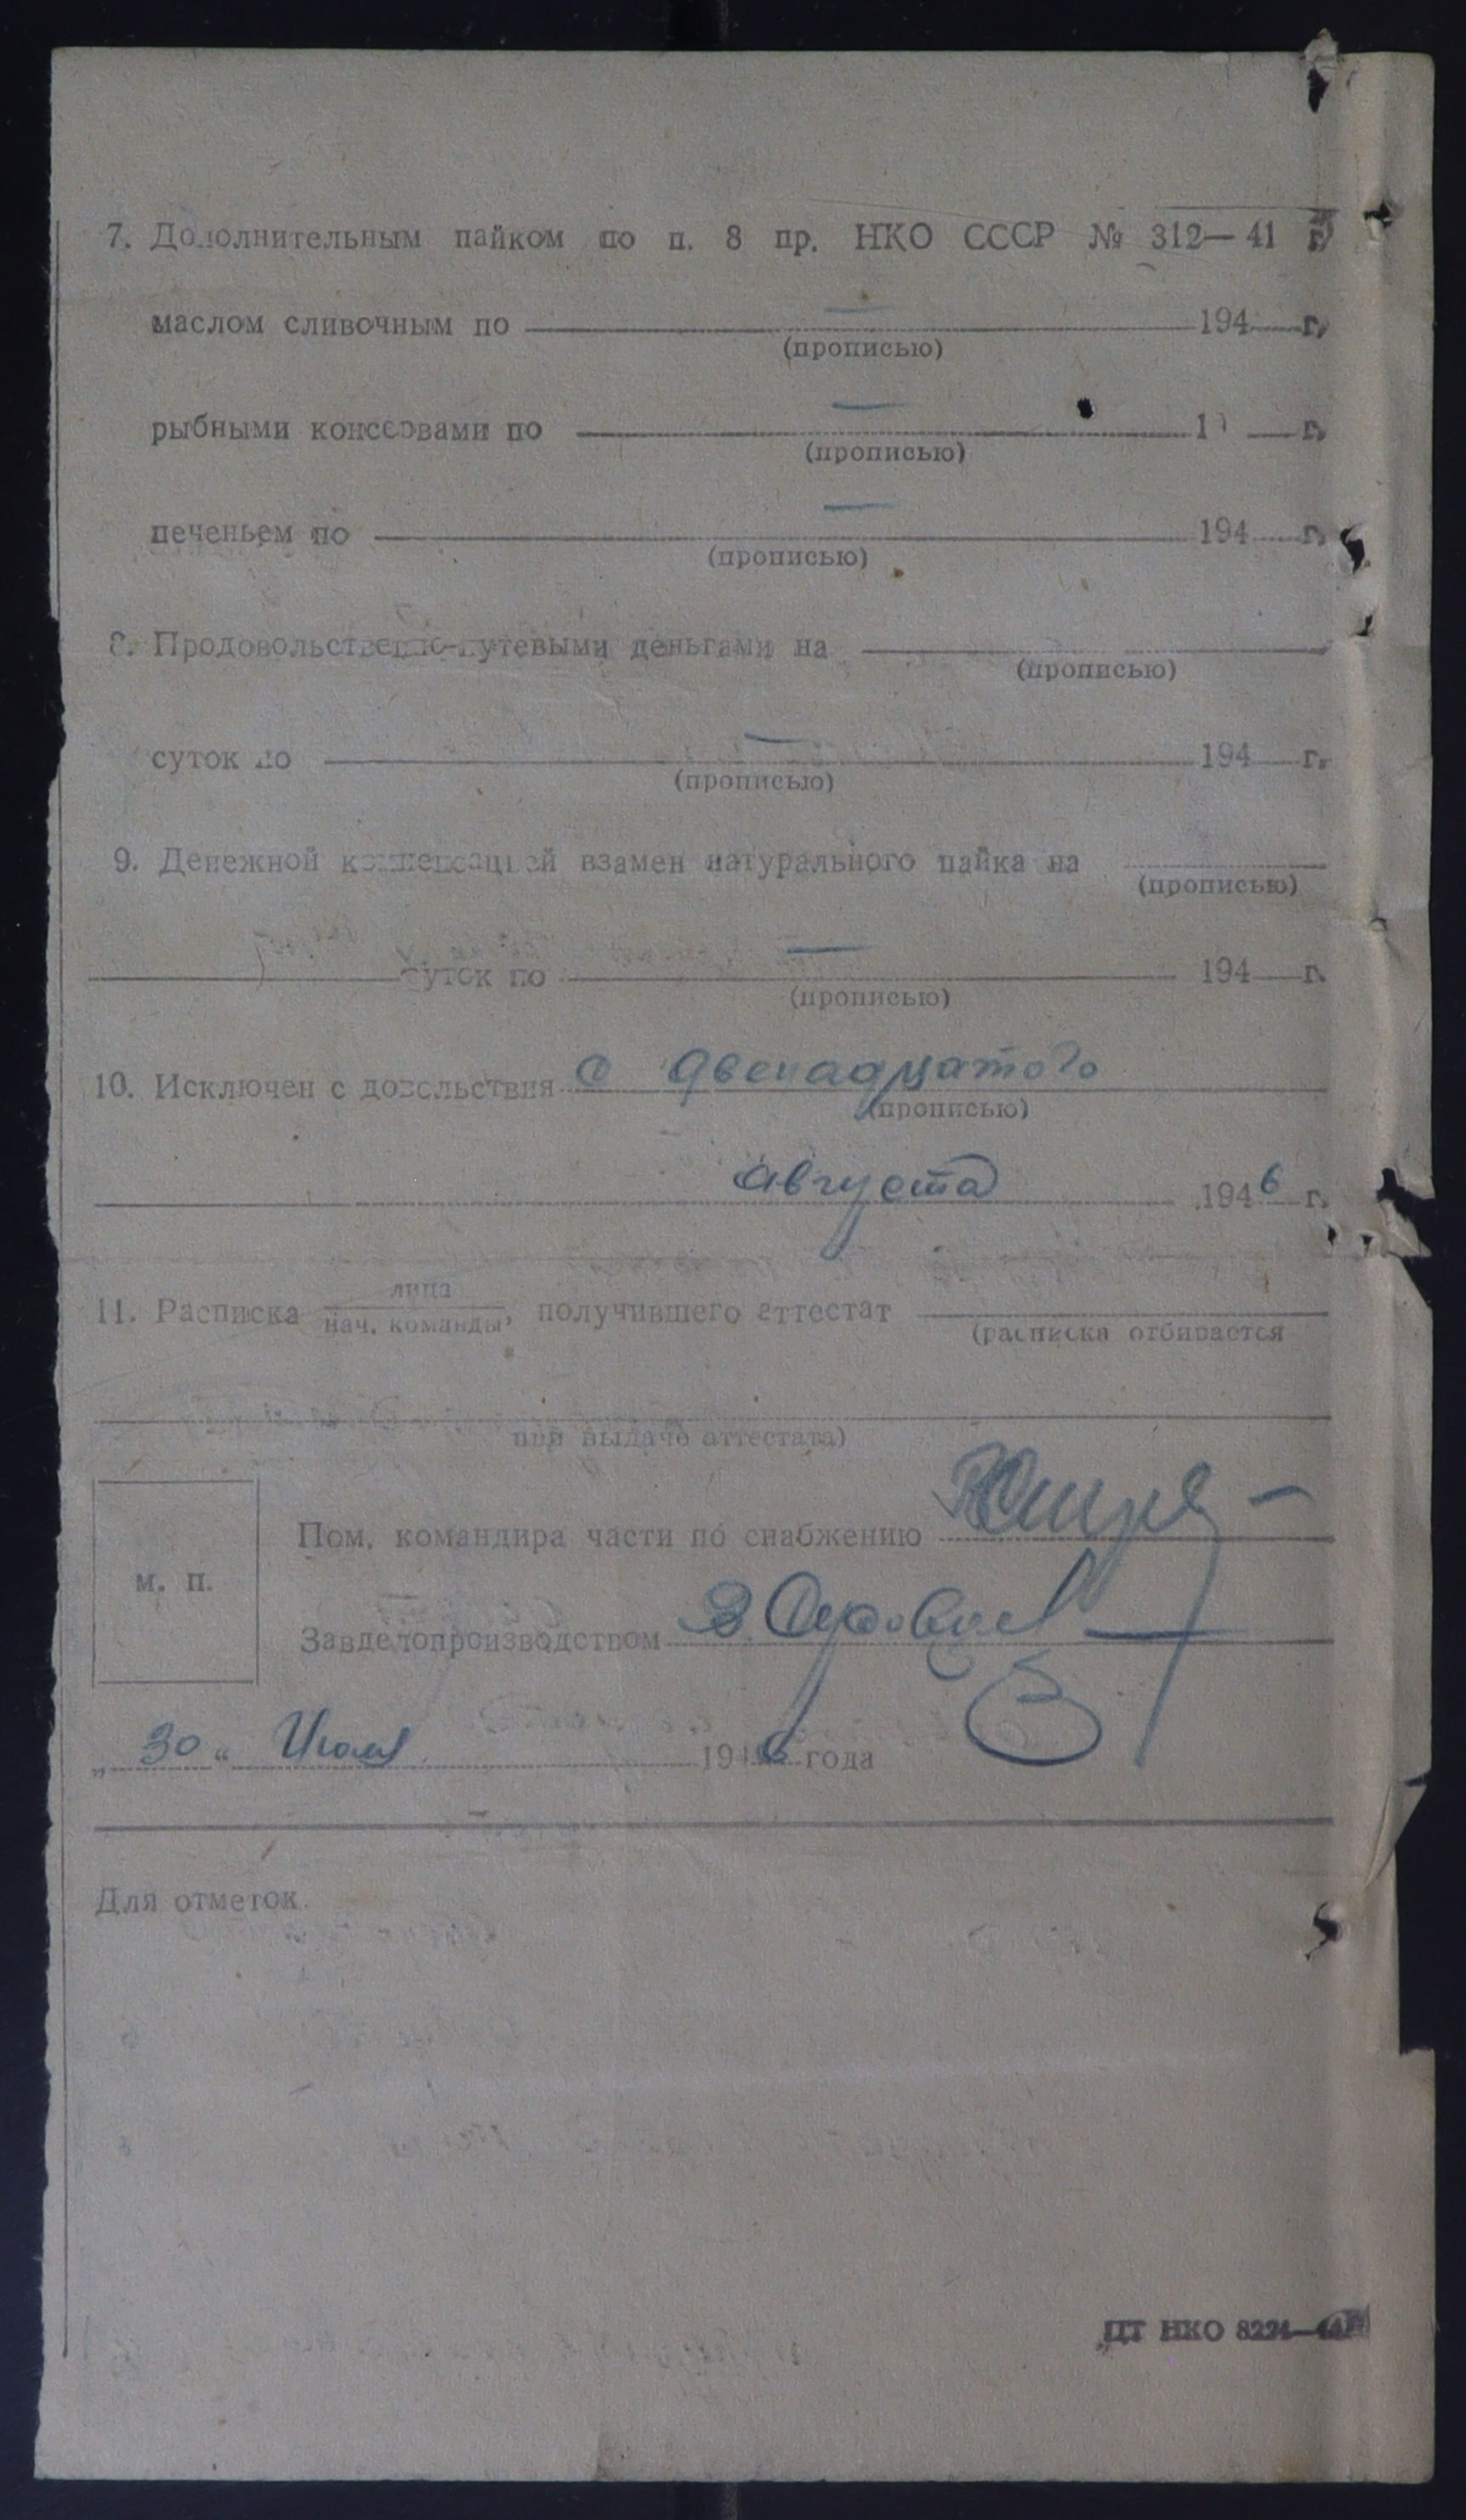 7. Дополнительным пайком по п. 8 пр. НКО СССР № 312—41 г.
маслом сливочным по — 194 г.
(прописью)
рыбными консервами по — 19 г.
(прописью)
печеньем по — 194 г.
(прописью)
8. Продовольственно-путевыми деньгами на
(прописью)
суток по — 194 г.
(прописью)
9. Денежной компенсацией взамен натурального пайка на
(прописью)
суток по — 194 г.
(прописью)
10. Исключен с довольствия с двенадцатого
(прописью)
августа 1946 г.
11. Расписка лица
нач. команды, получившего аттестат
(расписка отбирается
при выдаче аттестата)
Пом. командира части по снабжению
м. п.
Завделопроизводством
„30“ Июля 1946 года
Для отметок.
ЦТ НКО 8224—